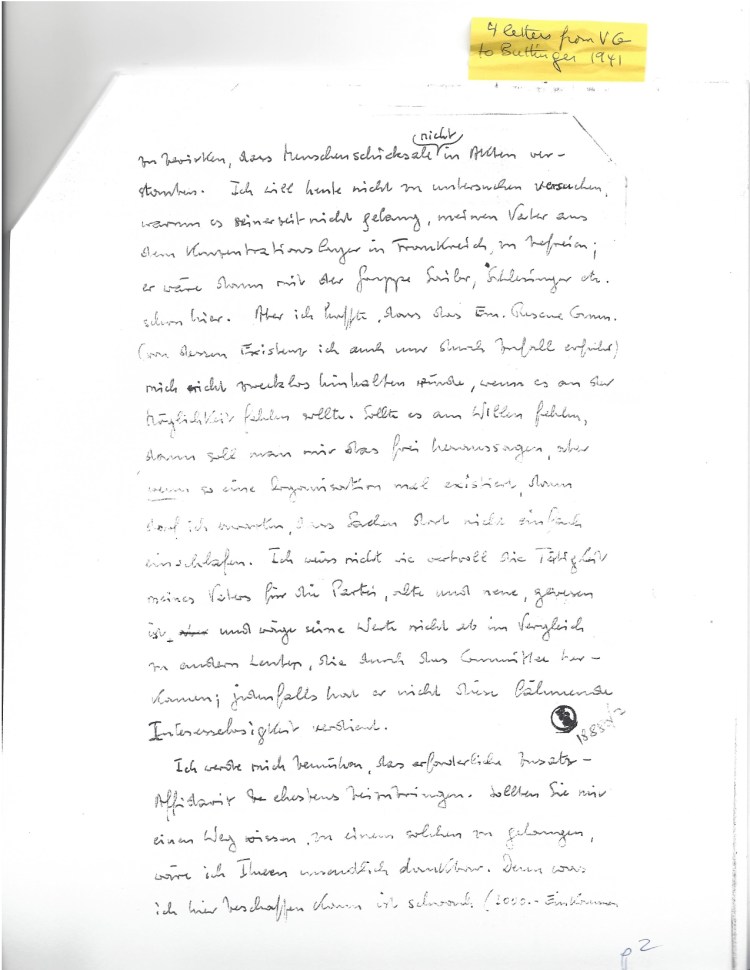 4 letters from VG
to Buttinger 1941
nicht
zu bewirken, dass Menschenschicksale in Akten ver-
stauben. Ich will heute nicht zu untersuchen versuchen,
warum es seinerzeit nicht gelang, meinen Vater aus
dem Konzentrationslager in Frankreich, zu befreien;
er wäre dann mit der Gruppe Sailer, Schlesinger etc.
schon hier. Aber ich hoffte, dass das Em. Rescue Comm.
(von dessen Existenz ich auch nur durch Zufall erfuhr)
mich nicht zwecklos hinhalten würde, wenn es an der
Möglichkeit fehlen sollte. Sollte es am Willen fehlen,
dann soll man mir das frei heraussagen, aber
wenn so eine Organisation mal existiert, dann
darf ich erwarten, dass Sachen dort nicht einfach
einschlafen. Ich weiss nicht wie wertvoll die Tätigkeit
meines Vaters für die Partei, alte und neue, gewesen
ist, und wäge seine Werte nicht ab im Vergleich
zu andern Leuten, die durch das Committee her-
kamen; jedenfalls hat er nicht diese lähmende
Interesselosigkeit verdient.
Ich werde mich bemühen, das erforderliche Zusatz-
Affidavit ehestens beizubringen. Sollten Sie mir
einen Weg wissen, zu einem solchen zu gelangen,
wäre ich Ihnen unendlich dankbar. Denn was
ich hier beschaffen kann ist schwach (2000.- Einkommen
p 2